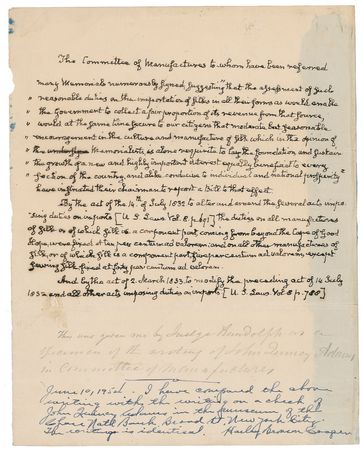 The Committee of Manufactures to whom have been referred
many Memorials numerously signed, suggesting "that the assessment of such
" reasonable duties on the importation of silks in all their forms as would enable
" the Government to collect a fair proportion of its revenue from that source,
" would at the same time secure to our citizens that moderate but reasonable
" encouragement in the culture and manufacture of silk which in the opinion of
" the Memorialists is alone requisite to lay the foundation and sustain
" the growth of a new and highly important interest equally beneficial to every
" section of the country and alike conducive to individual and national prosperity"
have instructed their chairman to report a Bill to that effect.
By the act of the 14th of July 1832 to alter and amend the several acts impo-
sing duties on imports [U. S. Laws Vol. 8. p. 691] The duties on all manufactures
of silk or of which silk is a component part coming from beyond the Cape of Good
Hope, were fixed at ten per centum ad valorem and on all other manufactures of
silk, or of which silk is a component part, five per centum ad valorem, except
sewing silk fixed at forty per centum ad valorem.
And by the act of 2. March 1833. to modify the preceding act of 14 July
1832 and all other acts imposing duties on imports [U. S. Laws Vol. 8 p. 780]
This was given me by Judge Randolph as a
specimen of the writing of John Quincy Adams
in Committee of Manufactures
June 10, 1954. I have compared the above
writing with the writing on a check of
John Quincy Adams in the museum of the
Chase Natl Bank Broad St. New York City.
The writing is identical. Harley Bronson Cooper